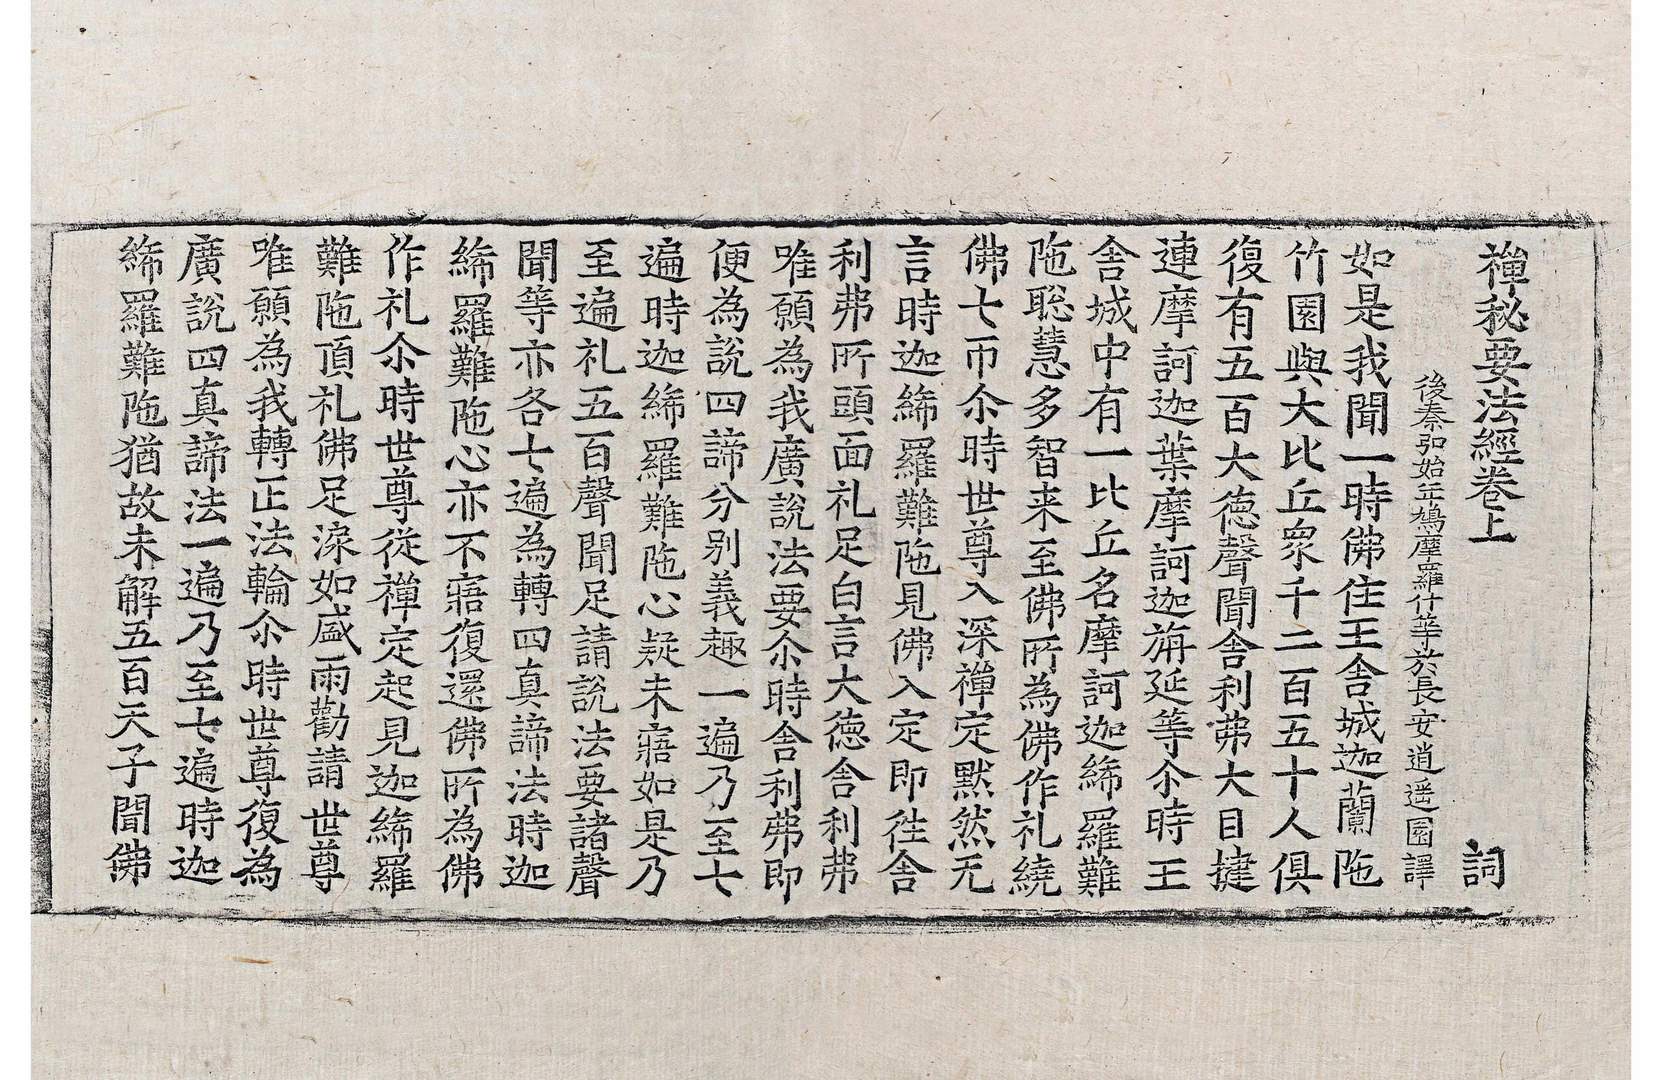 禪秘要法經卷上　詞
後秦弘始年鳩摩羅什等於長安逍遥園譯
如是我聞一時佛住王舍城迦蘭陁
竹園與大比丘衆千二百五十人俱
復有五百大德聲聞舍利弗大目揵
連摩訶迦葉摩訶迦旃延等尒時王
舍城中有一比丘名摩訶迦絺羅難
陁聡慧多智来至佛所為佛作礼繞
佛七帀尒時世尊入深禪定默然无
言時迦絺羅難陁見佛入定即往舍
利弗所頭面礼足白言大德舍利弗
唯願為我廣說法要尒時舍利弗即
便為說四諦分别義趣一遍乃至七
遍時迦絺羅難陁心疑未寤如是乃
至遍礼五百聲聞足請說法要諸聲
聞等亦各七遍為轉四真諦法時迦
絺羅難陁心亦不寤復還佛所為佛
作礼尒時世尊從禪定起見迦絺羅
難陁頂礼佛足淚如盛雨勸請世尊
唯願為我轉正法輪尒時世尊復為
廣說四真諦法一遍乃至七遍時迦
絺羅難陁猶故未解五百天子聞佛